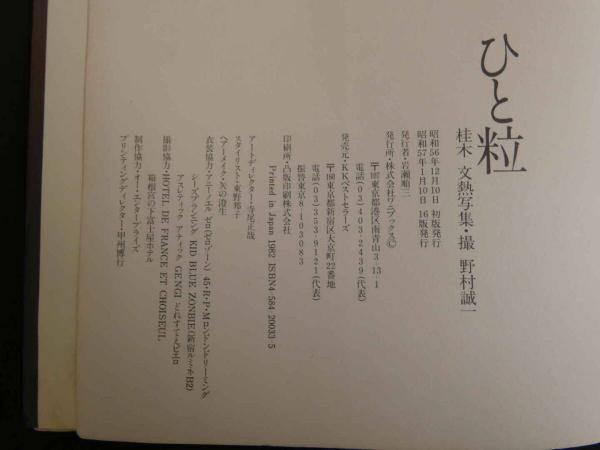 ひと粒
桂木 文熱写集・撮 野村誠一
昭和56年12月10日 初版発行
昭和57年1月10日 16版発行
発行者・岩瀬順三
発行所・株式会社ワニブックス©
〒107東京都港区南青山3-13-1
電話(03)403-2439(代表)
発売元・KKベストセラーズ
〒160東京都新宿区大京町22番地
電話(03)353-9121(代表)
振替東京8-103083
印刷所・凸版印刷株式会社
Printed in Japan 1982 ISBN4-584-20033-5
アートディレクター・寺尾正哉
スタイリスト・東野邦子
ヘアーメイク・矢の澄生
衣装協力・アニーエル ゼロ(ゼロゾーン) 45・R・P・M ロンドンドリーミング
シーズプランニング KID BLUE ZONBIE(新宿ルミネB2)
アスレティック アティック GENGI
撮影協力・HOTEL DE FRANCE ET CHOISEUL
箱根宮の下富士屋ホテル
制作協力・オー・エンタープライズ
プリンティングディレクター・甲州博行